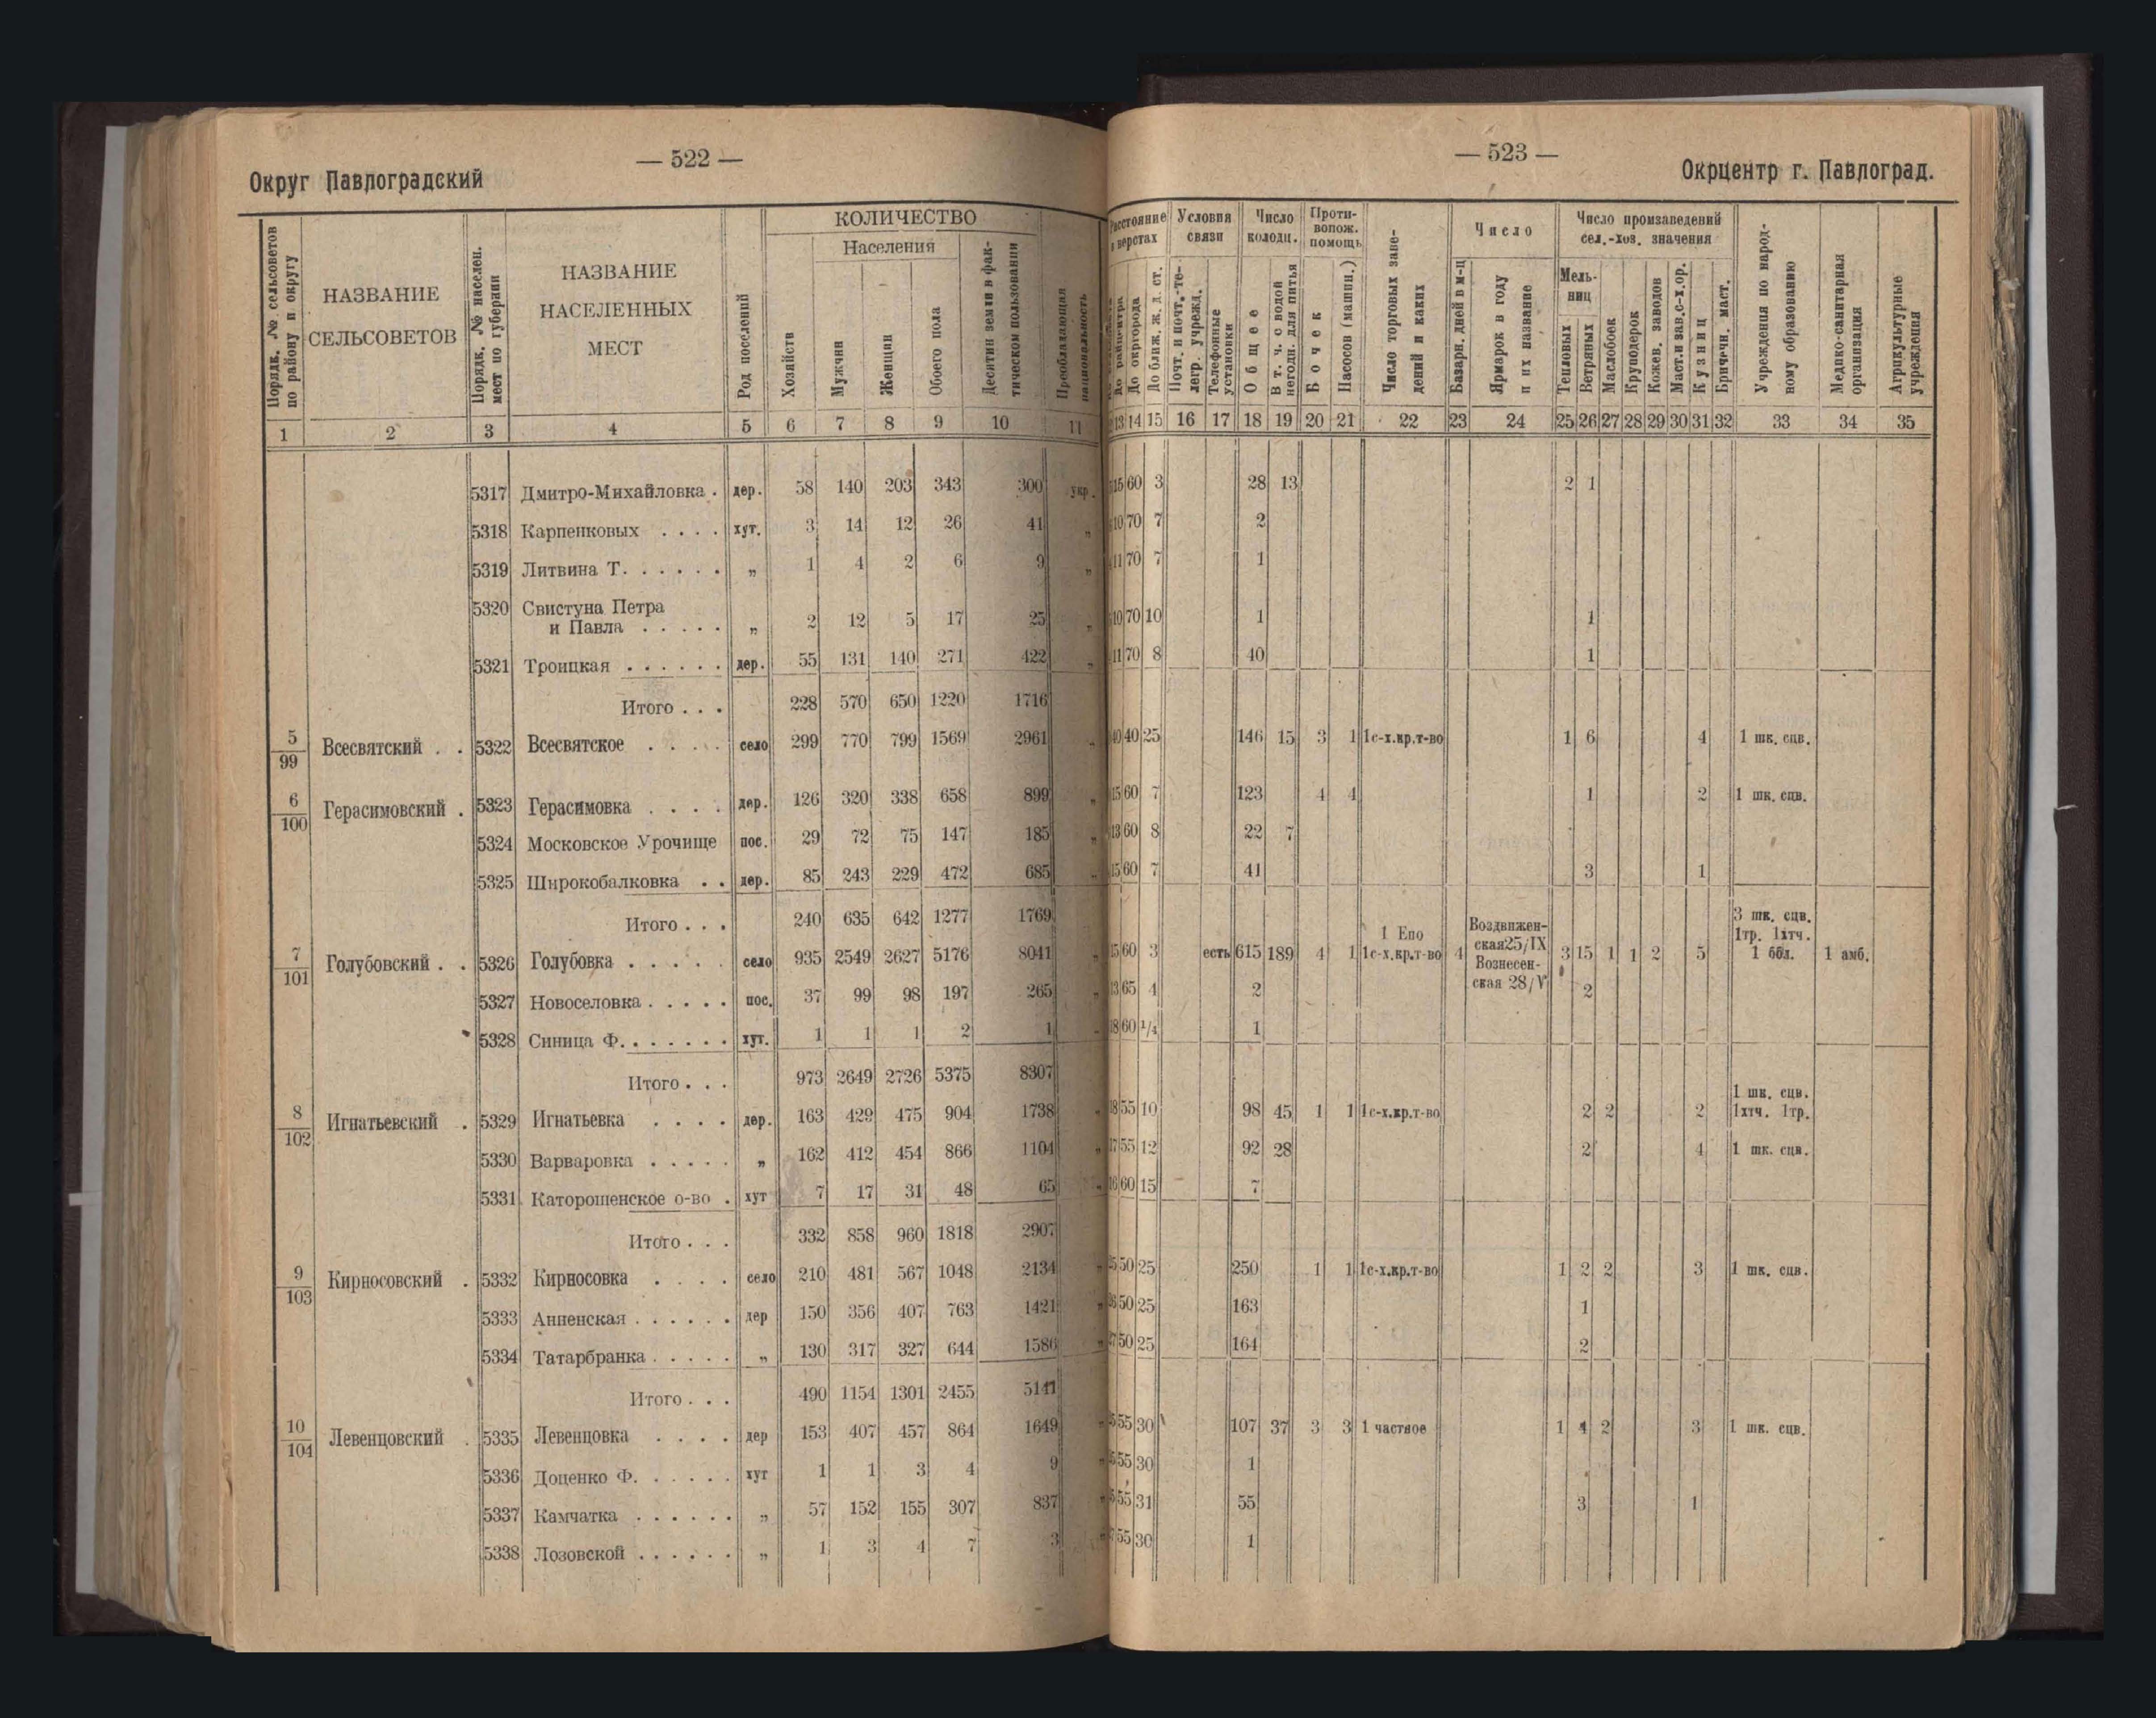 — 522 —
Округ Павлоградский
Порядк. № сельсоветов по району и округу
НАЗВАНИЕ СЕЛЬСОВЕТОВ
Порядк. № населен. мест по губернии
НАЗВАНИЕ НАСЕЛЕННЫХ МЕСТ
Род поселений
КОЛИЧЕСТВО
Хозяйств
Населения
Мужчин
Женщин
Обоего пола
Десятин земли в фактическом пользовании
Преобладающая национальность
1 2 3 4 5 6 7 8 9 10 11
5317 Дмитро-Михайловка . дер. 58 140 203 343 300 укр.
5318 Карпенковых . . . . хут. 3 14 12 26 41 „
5319 Литвина Т. . . . . . „ 1 4 2 6 9 „
5320 Свистуна Петра
и Павла . . . . . „ 2 12 5 17 25 „
5321 Троицкая . . . . . . дер. 55 131 140 271 422 „
Итого . . . 228 570 650 1220 1716
5/99 Всесвятский . . 5322 Всесвятское . . . . село 299 770 799 1569 2961 „
6/100 Герасимовский . 5323 Герасимовка . . . . дер. 126 320 338 658 899 „
5324 Московское Урочище пос. 29 72 75 147 185 „
5325 Широкобалковка . . дер. 85 243 229 472 685 „
Итого . . . 240 635 642 1277 1769
7/101 Голубовский . . 5326 Голубовка . . . . . село 935 2549 2627 5176 8041 „
5327 Новоселовка . . . . . пос. 37 99 98 197 265 „
5328 Синица Ф. . . . . . . хут. 1 1 1 2 1 „
Итого . . . 973 2649 2726 5375 8307
8/102 Игнатьевский . 5329 Игнатьевка . . . . дер. 163 429 475 904 1738 „
5330 Варваровка . . . . . „ 162 412 454 866 1104 „
5331 Каторошенское о-во . хут 7 17 31 48 65 „
Итого . . . 332 858 960 1818 2907
9/103 Кирносовский . 5332 Кирносовка . . . . село 210 481 567 1048 2134 „
5333 Анненская . . . . . . дер 150 356 407 763 1421 „
5334 Татарбранка . . . . . „ 130 317 327 644 1586 „
Итого . . . 490 1154 1301 2455 5141
10/104 Левенцовский . 5335 Левенцовка . . . . дер 153 407 457 864 1649 „
5336 Доценко Ф. . . . . . хут 1 1 3 4 9 „
5337 Камчатка . . . . . . „ 57 152 155 307 837 „
5338 Лозовской . . . . . . „ 1 3 4 7 3 „
— 523 —
Окрцентр г. Павлоград.
Расстояние в верстах
До райцентра
До окргорода
До ближ. ж. д. ст.
Условия связи
Почт. и почт.-телегр. учрежд.
Телефонные установки
Число колодц.
Общее
В т. ч. с водой негодн. для питья
Противопож. помощь
Бочек
Насосов (машин.)
Число торговых заведений и каких
Число
Базарн. дней в м-ц
Ярмарок в году и их название
Число произаведений сел.-хоз. значения
Мельниц
Тепловых
Ветряных
Маслобоек
Круподерок
Кожев. заводов
Маст.и зав.с-х.ор.
Кузниц
Бричечн. маст.
Учреждения по народному образованию
Медико-санитарная организация
Агрикультурные учреждения
13 14 15 16 17 18 19 20 21 22 23 24 25 26 27 28 29 30 31 32 33 34 35
15 60 3 28 13 2 1
10 70 7 2
11 70 7 1
10 70 10 1 1
11 70 8 40 1
40 40 25 146 15 3 1 1с-х.кр.т-во 1 6 4 1 шк. сцв.
15 60 7 123 4 4 1 2 1 шк. сцв.
13 60 8 22 7
15 60 7 41 3 1
15 60 3 есть 615 189 4 1 1 Епо 1с-х.кр.т-во 4 Воздвиженская 25/IX Вознесенская 28/V 3 15 1 1 2 5 3 шк. сцв. 1тр. 1хтч. 1 ббл. 1 амб.
13 65 4 2 2
18 60 1/4 1
18 55 10 98 45 1 1 1с-х.кр.т-во 2 2 2 1 шк. сцв. 1хтч. 1тр.
17 55 12 92 28 2 4 1 шк. сцв.
16 60 15 7
50 25 250 1 1 1с-х.кр.т-во 1 2 2 3 1 шк. сцв.
50 25 163 1
50 25 164 2
55 30 107 37 3 3 1 частное 1 4 2 3 1 шк. сцв.
55 30 1
55 31 55 3 1
55 30 1